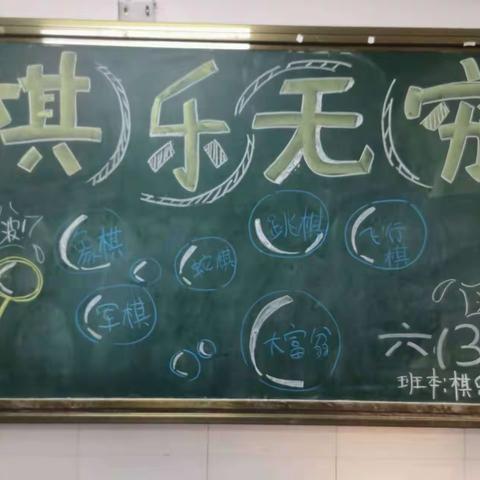 棋乐无穷
象棋
蛇棋
跳棋
飞行
棋
军棋
大富翁
六(3
班本:棋